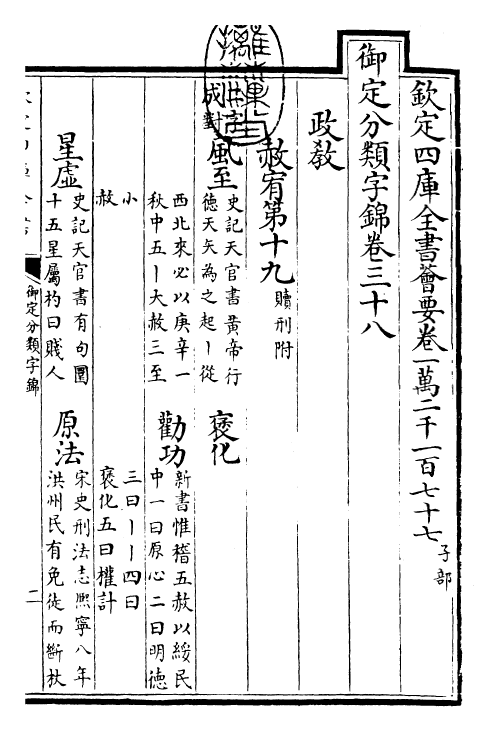 欽定四庫全書薈要卷一萬二千一百七十七 子部
御定分類字錦卷三十八
政教
赦宥第十九 贖刑附
成對
風至 史記天官書黄帝行
德天夭為之起丨從
西北來必以庚辛一
秋中五丨大赦三至
小
赦
褒化
勸功 新書惟稽五赦以綏民
中一曰原心二曰明德
三曰丨丨四曰
褒化五曰權計
星虛 史記天官書有句圜
十五星屬杓曰賤人
原法 宋史刑法志熙寧八年
洪州民有免徒而斷杖
御定分類字錦
二